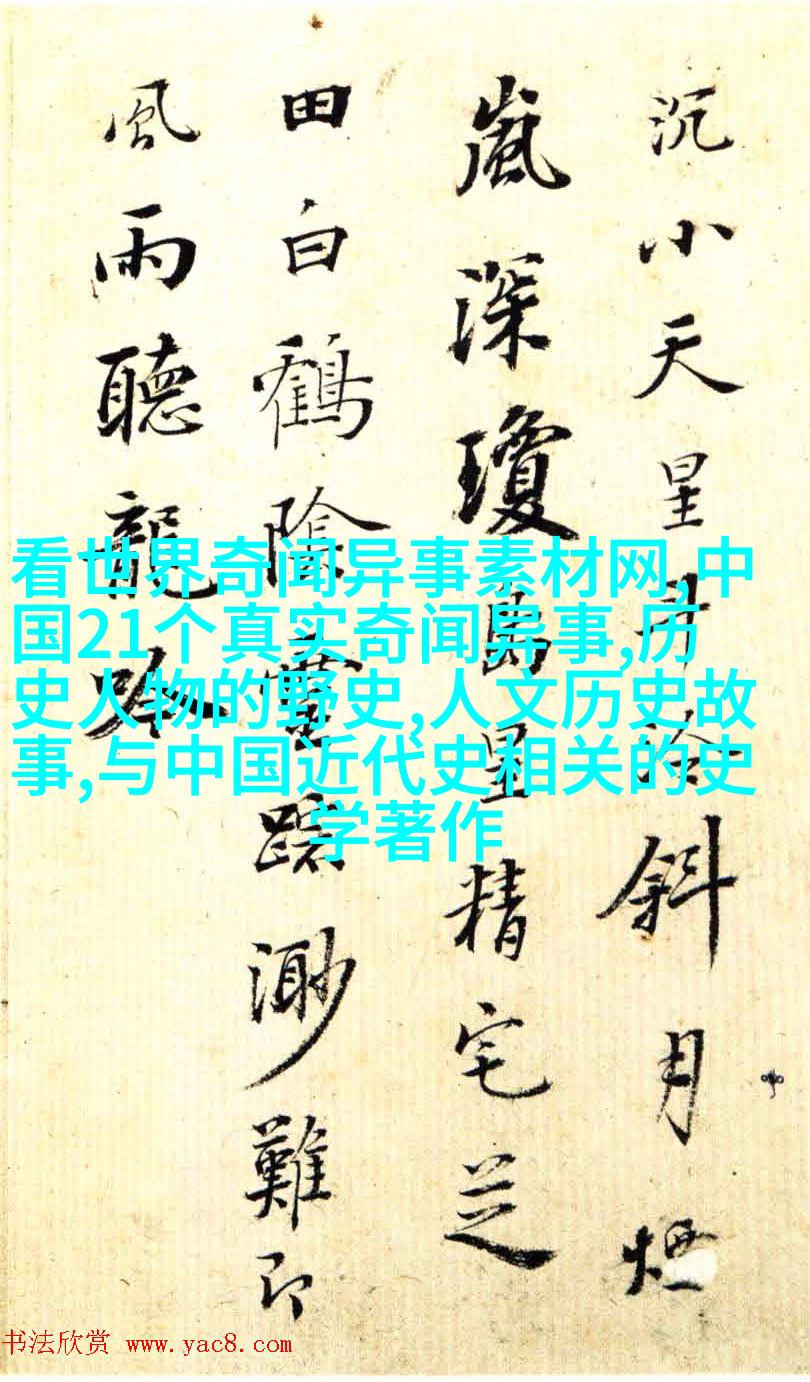 沉小天星冷斜月煙
嵐深瓊島里精宅芝
田白鶴陰靈蹤渺難即
風雨聽龍吟
看世界奇闻异事素材网,中
国21个真实奇闻异事,历
史人物的野史,人文历史故
事,与中国近代史相关的史
学著作
书法欣赏 www.yac8.com